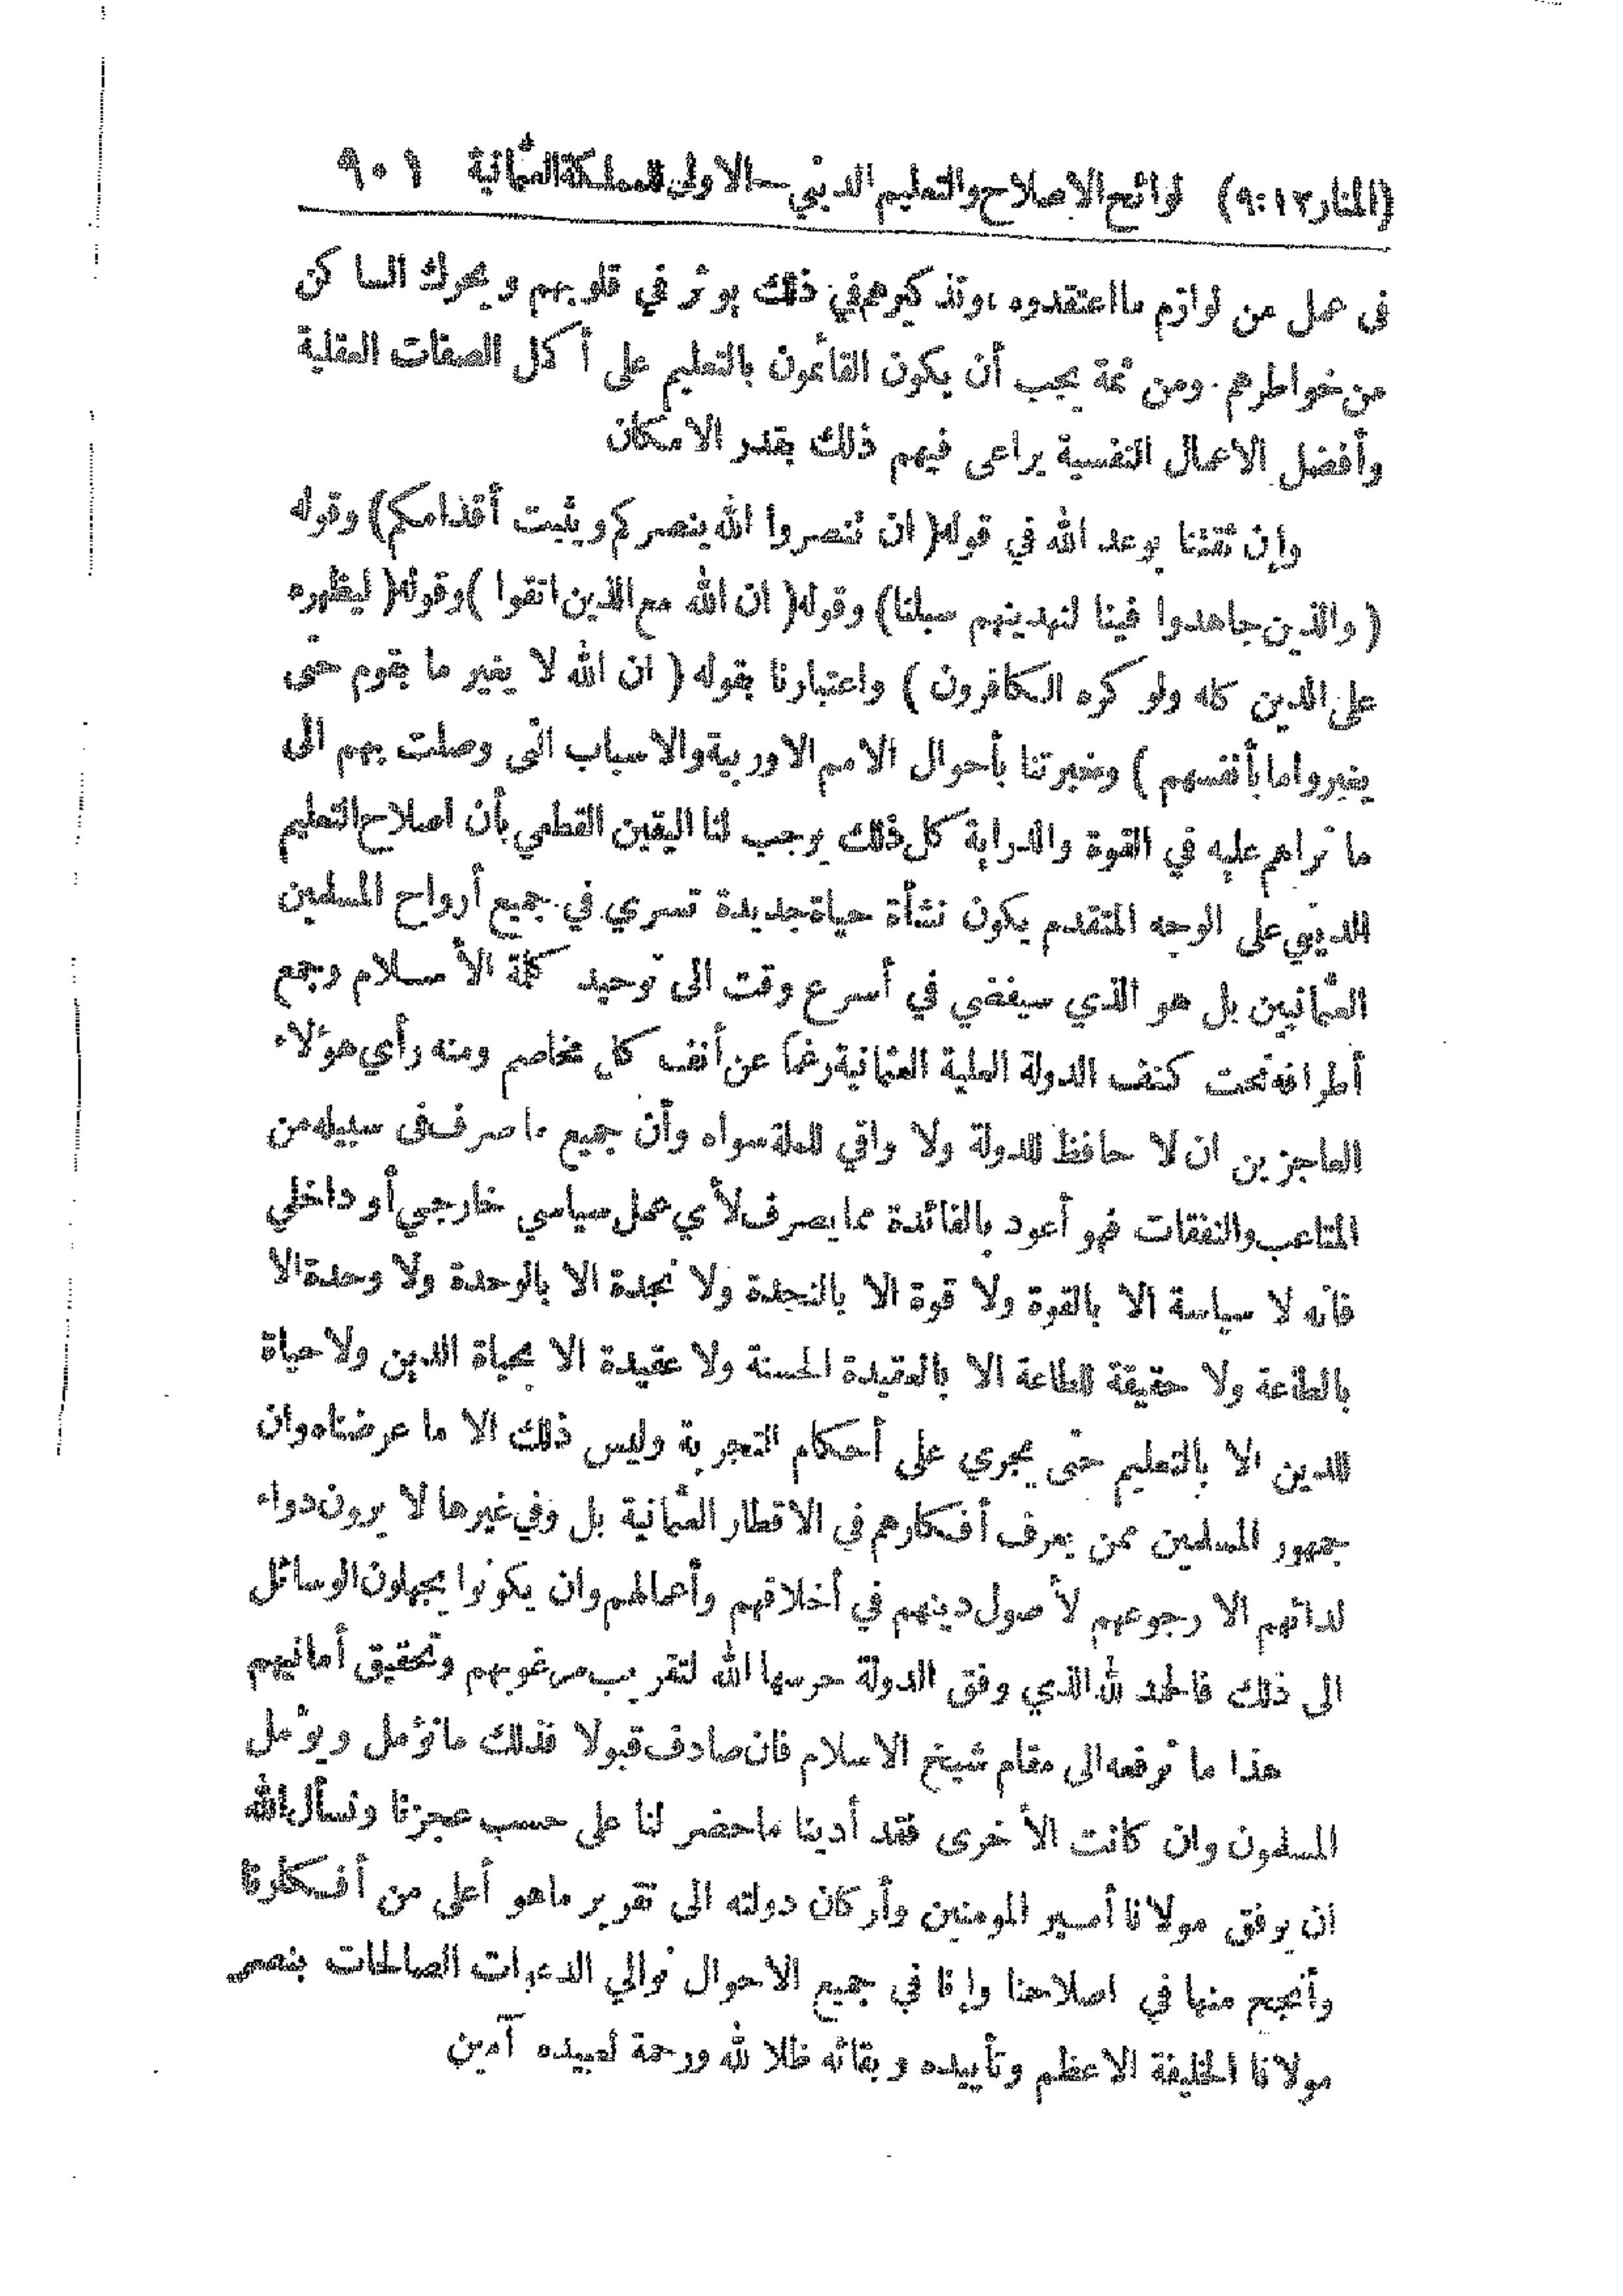 (المنار ١٢:٩) لوائح الاصلاح والتعليم الديني — الاولى للمملكة العثمانية ٩٠١
في عمل من لوازم ما اعتقدوه، وتذكيرهم في ذلك يوثر في قلوبهم ويحرك الساكن
من خواطرهم. ومن ثمة يجب أن يكون القائمون بالتعليم على أكمل الصفات العقلية
وأفضل الاعمال النفسية يراعى فيهم ذلك بقدر الامكان
وإن ثقتنا بوعد الله في قوله (ان تنصروا الله ينصركم ويثبت أقدامكم) وقوله
(والذين جاهدوا فينا لنهدينهم سبلنا) وقوله (ان الله مع الذين اتقوا) وقوله (ليظهره
على الدين كله ولو كره الكافرون) واعتبارنا بقوله (ان الله لا يغير ما بقوم حتى
يغيروا ما بأنفسهم) وخبرتنا بأحوال الامم الاوربية والاسباب التي وصلت بهم الى
ما نراهم عليه في القوة والدراية كل ذلك يوجب لنا اليقين القطعي بأن اصلاح التعليم
الديني على الوجه المتقدم يكون نشأة حياة جديدة تسري في جميع أرواح المسلمين
العثمانيين بل هو الذي سيفضي في أسرع وقت الى توحيد كلمة الأسلام وجمع
أطرافه تحت كنف الدولة العلية العثمانية رغما عن أنف كل مخاصم ومنه رأي هؤلاء
العاجزين ان لا حافظ للدولة ولا واقي للملة سواه وأن جميع ما صرف في سبيله من
المتاعب والنفقات فهو أعود بالفائدة مما يصرف لأي عمل سياسي خارجي أو داخلي
فانه لا سياسة الا بالقوة ولا قوة الا بالنجدة ولا نجدة الا بالوحدة ولا وحدة الا
بالطاعة ولا حقيقة للطاعة الا بالعقيدة الحسنة ولا عقيدة الا بحياة الدين ولا حياة
للدين الا بالتعليم حتى يجري على أحكام التجربة وليس ذلك الا ما عرضناه وان
جمهور المسلمين ممن يعرف أفكارهم في الاقطار العثمانية بل وفي غيرها لا يرون دواء
لدائهم الا رجوعهم لأصول دينهم في أخلاقهم وأعمالهم وان يكونوا يجهلون الوسائل
الى ذلك فالحمد لله الذي وفق الدولة حرسها الله لتقريب مرغوبهم وتحقيق أمانيهم
هذا ما نرفعه الى مقام شيخ الاسلام فان صادف قبولا فذلك ما نؤمل ويؤمل
المسلمون وان كانت الأخرى فقد أدينا ما حضر لنا على حسب عجزنا ونسأل الله
ان يوفق مولانا أمير المومنين وأركان دولته الى تقرير ما هو أعلى من أفكارنا
وأنجح منها في اصلاحنا وإنا في جميع الاحوال نوالي الدعوات الصالحات بنصر
مولانا الخليفة الاعظم وتأييده وبقائه ظلا لله ورحمة لعبيده آمين